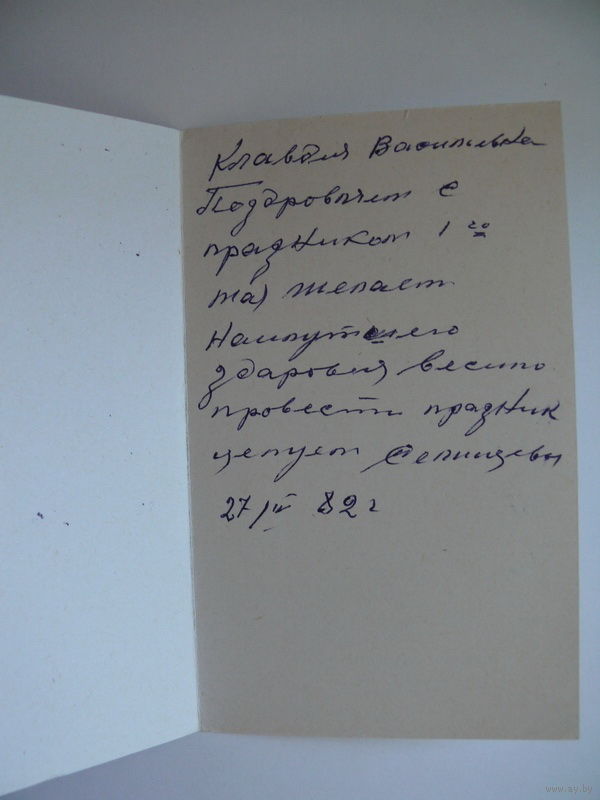 Клавдия Васильевна
Поздровляем с
праздником 1 го
мая желаем
Наилутшего
здаровья весило
провести праздник
целуем
27/IV 82 г
www.ay.by